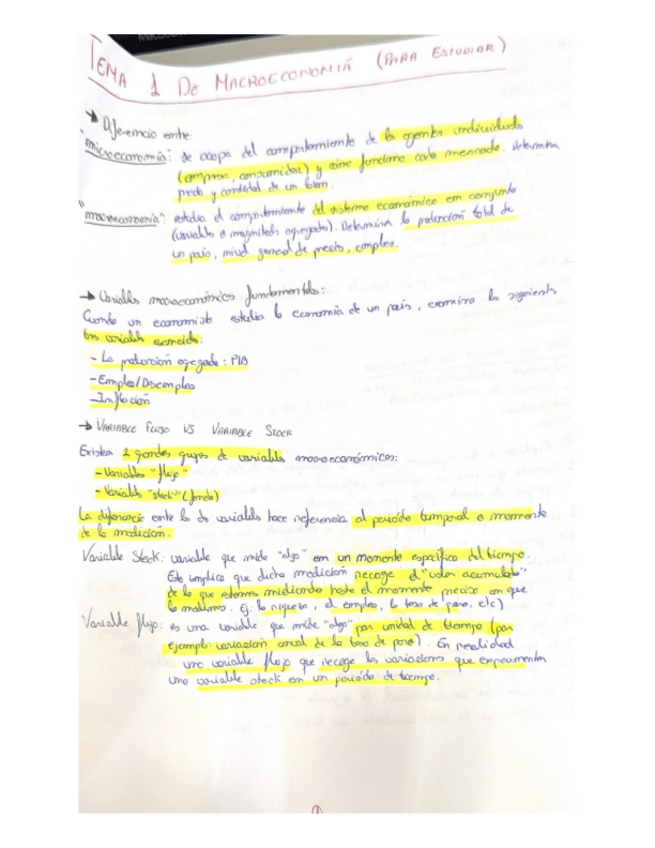 TEMA 1 DE MACROECONOMIA (PARA ESTUDIAR)
→ Diferencia entre:
"microeconomía": se ocupa del comportamiento de los agentes individuales
(empresa, consumidor) y cómo funciona cada mercado. Determina
precio y cantidad de un bien.
"macroeconomía": estudia el comportamiento del sistema económico em conjunto
(variables o magnitudes agregadas). Determina la producción total de
un país, nivel general de precios, empleo.
→ Variables macroeconómicas fundamentales:
Cuando un economista estudia la economía de un país, examina las siguientes
tres variables esenciales:
- La producción agregada: PIB
- Empleo/Desempleo
- Inflación
→ VARIABLE FLUJO VS VARIABLE STOCK
Existen 2 grandes grupos de variables macroeconómicas:
- Variables "flujo"
- Variables "stock" (fondo)
La diferencia entre las dos variables hace referencia al periodo temporal o momento
de la medición.
Variable Stock: variable que mide "algo" em un momento específico del tiempo.
Esto implica que dicha medición recoge el "valor acumulado"
de lo que estamos midiendo hasta el momento preciso em que
lo medimos. Ej: la riqueza, el empleo, la tasa de paro, etc)
Variable flujo: es una variable que mide "algo" por unidad de tiempo (por
ejemplo: variación anual de la tasa de paro). En realidad
una variable flujo que recoge las variaciones que experimenta
una variable stock em un periodo de tiempo.
1